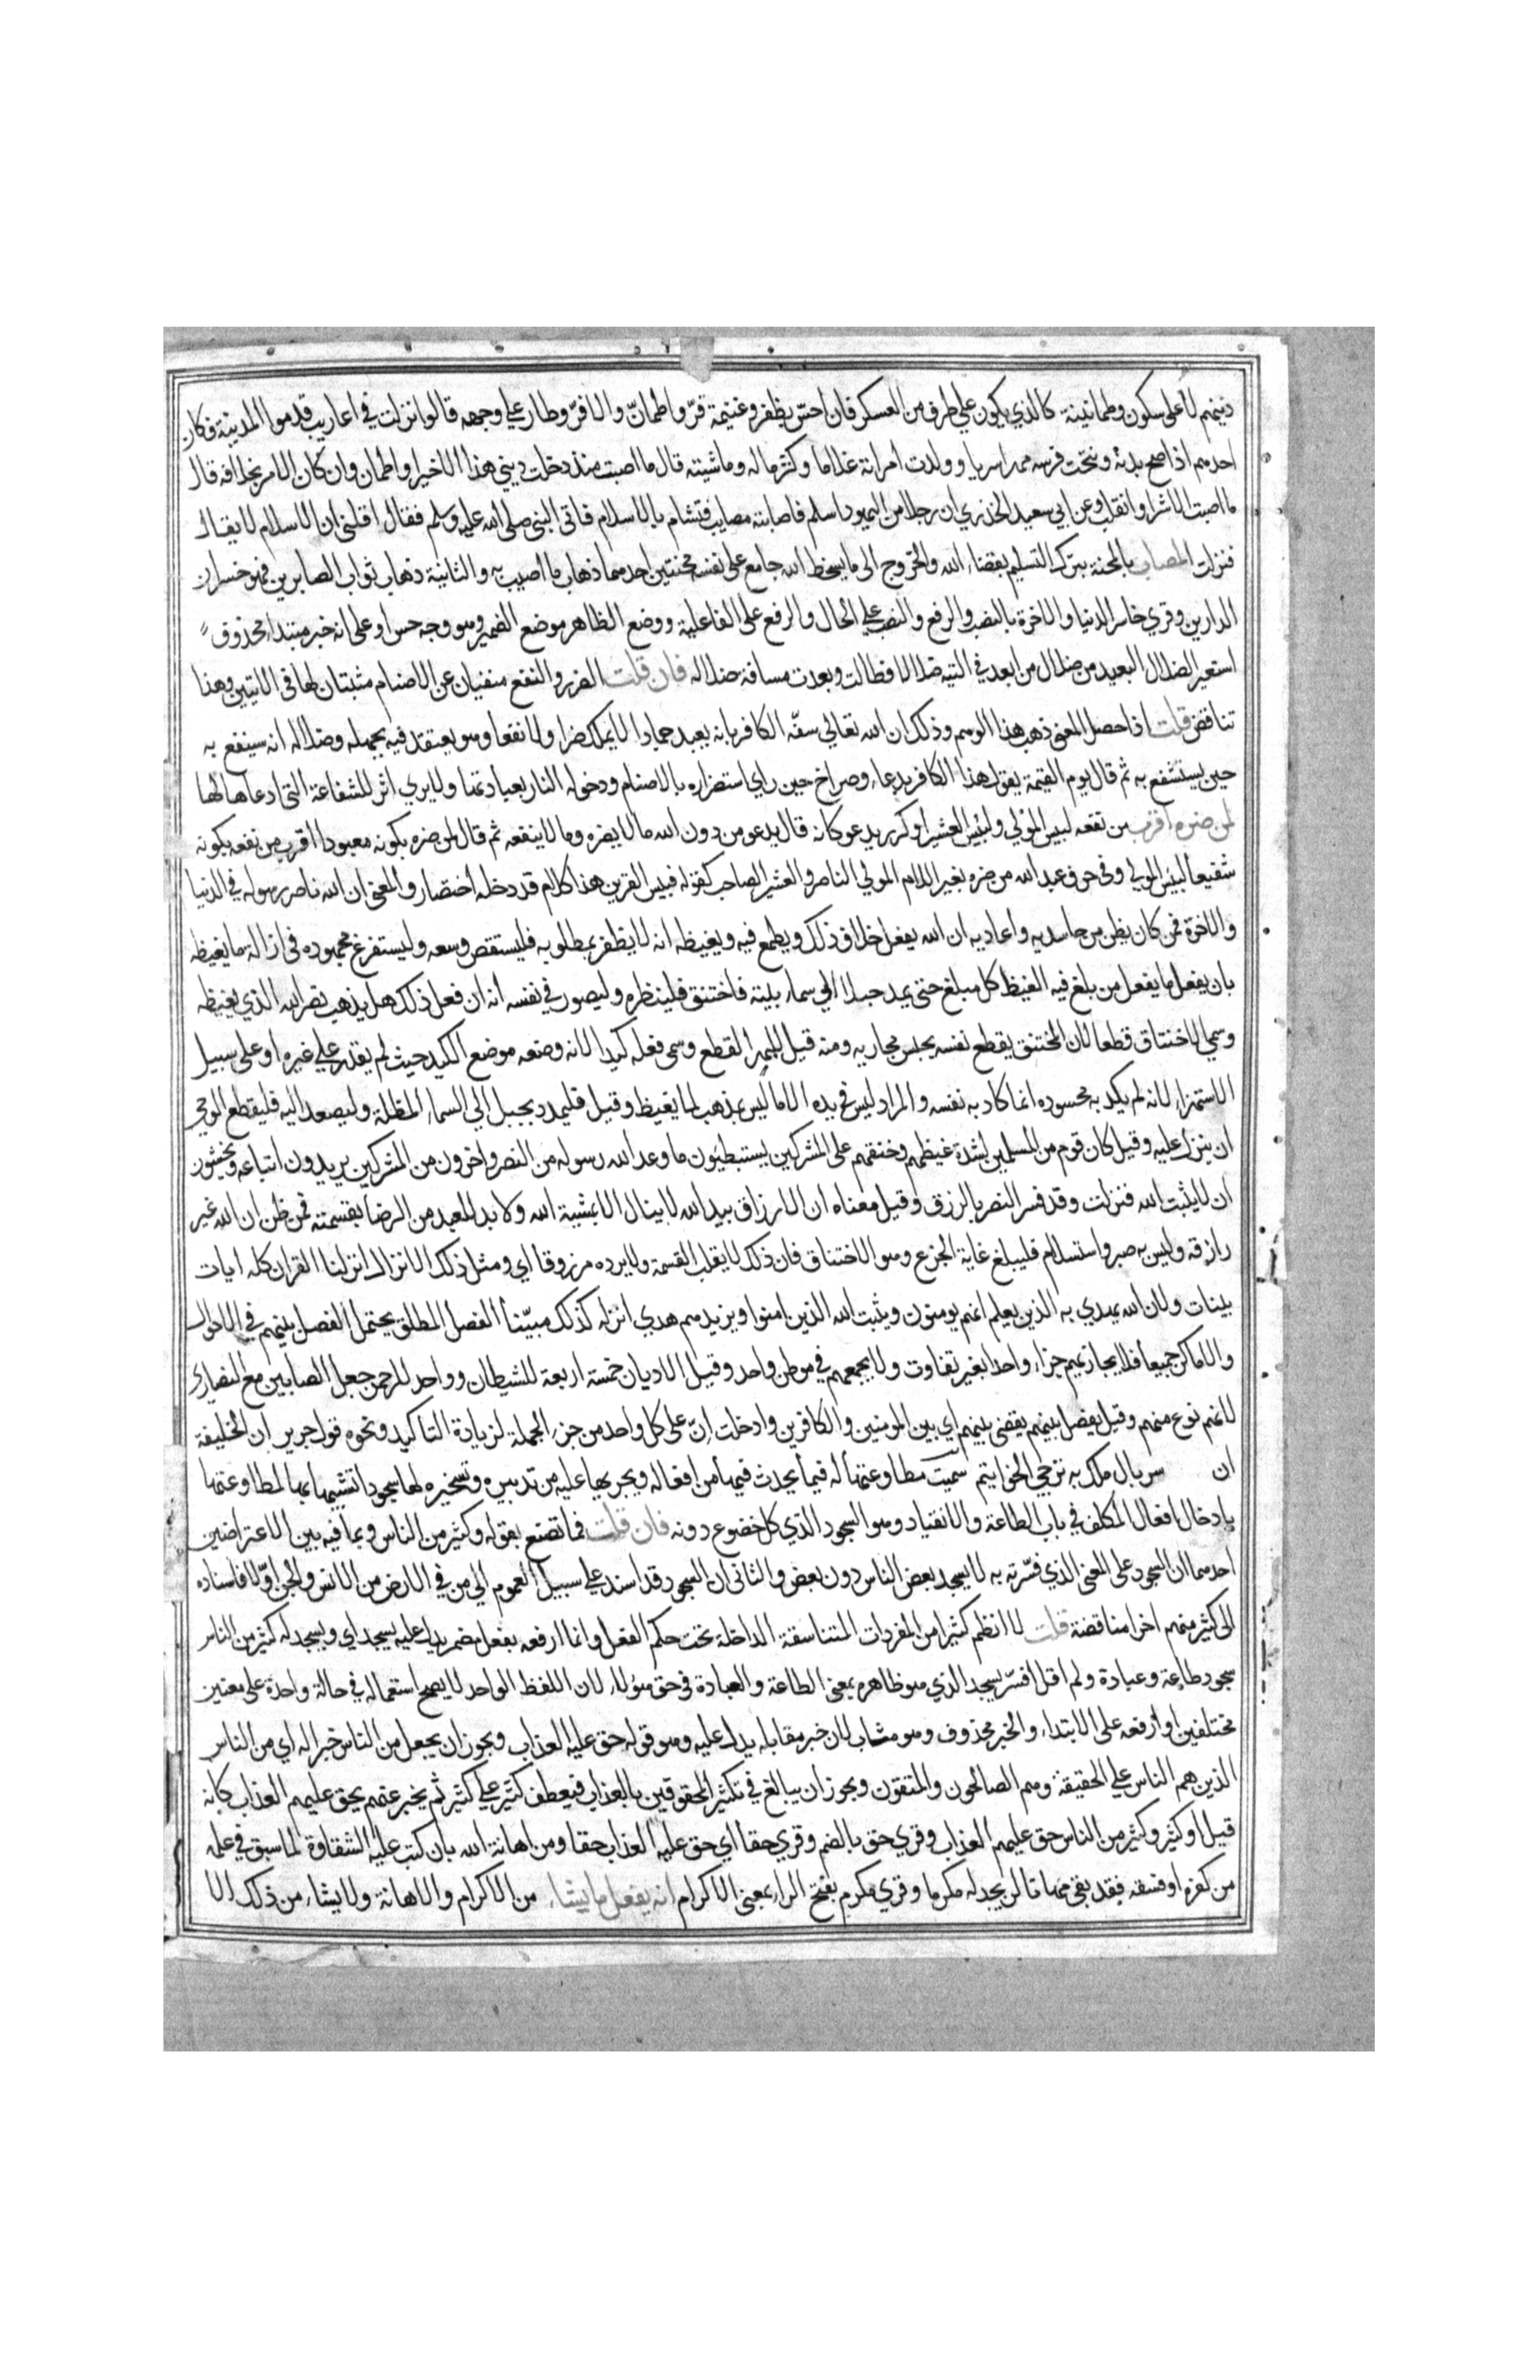 دينهم لا على سكون وطمانينة كالذي يكون علي طرف من العسكر فان احسّ بظفر وغنيمة قرّ واطمانّ والا فرّ وطار علي وجهه قالوا نزلت في اعاريب قدموا المدينة فكان
احدهم اذا صح بدنه ونتجت فرسه مهرا سريا وولدت امراته غلاما وكثر ماله وماشيته قال ما اصبت منذ دخلت ديني هذا الا خيرا واطمان وان كان الامر بخلافه قال
ما اصبت الا شرا وانقلب وعن ابي سعيد الخدري ان رجلا من اليهود اسلم فاصابته مصايب فتشام بالاسلام فاتى النبي صلى الله عليه وسلم فقال اقلني ان الاسلام لا يقال
فنزلت المصاب بالمحنة بترك التسليم بقضاء الله والخروج الى ما يسخط الله جامع على نفسه محنتين احدهما ذهاب ما اصيب به والثانية ذهاب ثواب الصابرين فهو خسران
الدارين وقري خاسر الدنيا والاخرة بالنصب والرفع والنصب علي الحال والرفع على الفاعلية ووضع الظاهر موضع الضمير وهو وجه حسن او على انه خبر مبتدا محذوف
استعير الضلال البعيد من ضلال من ابعد في التيه ضلالا فطالت وبعدت مسافة ضلاله فان قلت الضرر والنفع منفيان عن الاصنام مثبتان لها في الايتين وهذا
تناقض قلت اذا حصل المعنى ذهب هذا الوهم وذلك ان الله تعالي سفّه الكافر بانه يعبد جمادا لا يملك ضرا ولا نفعا وهو يعتقد فيه بجهله وضلاله انه سينفع به
حين يستشفع به ثم قال يوم القيمة يقول هذا الكافر بدعاء وصراخ حين راي استضراره بالاصنام ودخوله النار بعبادتها ولا يري اثر للشفاعة التي ادعاها لها
لمن ضره اقرب من نفعه لبيس المولي ولبيس العشير او كرر يدعو كانه قال يدعو من دون الله ما لا يضره وما لا ينفعه ثم قال لمن ضره بكونه معبودا اقرب من نفعه بكونه
شفيعا لبيس المولي وفي حرف عبد الله من ضره بغير اللام المولي الناصر والعشير الصاحب كقوله فبيس القرين هذا كلام قد دخله اختصار والمعنى ان الله ناصر رسوله في الدنيا
والاخرة فمن كان يظن من حاسديه واعاديه ان الله يفعل خلاف ذلك ويطمع فيه ويغيظه انه لا يظفر بمطلوبه فليستقص وسعه وليستفرغ مجهوده في ازالة ما يغيظه
بان يفعل ما يفعل من بلغ فيه الغيظ كل مبلغ حتى يمد حبلا الي سماء بيته فاختنق فلينظره وليصور في نفسه انه ان فعل ذلك هل يذهب نصر الله الذي يغيظه
وسمي الاختناق قطعا لان المختنق يقطع نفسه بحبس مجاريه ومنه قيل للبهر القطع وسمى فعله كيدا لانه وضعه موضع الكيد حيث لم يقدر علي غيره او على سبيل
الاستهزاء لانه لم يكد به محسوده انما كاد به نفسه والمراد ليس في يده الا ما ليس بمذهب لما يغيظ وقيل فليمدد بحبل الي السماء المظلة وليصعد اليه فليقطع الوحي
ان ينزل عليه وقيل كان قوم من المسلمين لشدة غيظهم وخنقهم على المشركين يستبطيون ما وعد الله رسوله من النصر واخرون من المشركين يريدون اتباعه ويخشون
ان لا يثبت الله فنزلت وقد فسر النصر بالرزق وقيل معناه ان الارزاق بيد الله لا ينال الا بمشية الله ولا بد للعبد من الرضا بقسمته فمن ظن ان الله غير
رازقه وليس به صبر واستسلام فليبلغ غاية الجزع وهو الاختناق فان ذلك لا يقلب القسمة ولا يرده مرزوقا اي ومثل ذلك الانزال انزلنا القران كله ايات
بينات ولان الله يهدي به الذين يعلم انهم يومنون ويثبت الله الذين امنوا ويزيدهم هدي انزله كذلك مبيّنا الفصل المطلق يحتمل الفصل بينهم في الاحوال
والاماكن جميعا فلا يجازيهم جزاء واحدا بغير تفاوت ولا يجمعهم في موطن واحد وقيل الاديان خمسة اربعة للشيطان وواحد للرحمن جعل الصابين مع النصارى
لانهم نوع منهم وقيل يفصل بينهم يقضي بينهم اي بين المومنين والكافرين وادخلت انّ على كل واحد من جزء الجملة لزيادة التاكيد ونحوه قول جرير ان الخليفة
ان سربال ملك به تزجي الخواتيم سميت مطاوعتها له فيما يحدث فيها من افعاله ويجريها عليه من تدبيره وتسخيره لها سجودا تشبيها بها لمطاوعتها
بادخال افعال المكلف في باب الطاعة والانقياد وهو السجود الذي كل خضوع دونه فان قلت فما تصنع بقوله وكثير من الناس وبما فيه بين الاعتراضين
احدهما ان السجود على المعنى الذي فسّرته به لا يسجد بعض الناس دون بعض والثاني ان السجود قد اسند علي سبيل العموم الي من في الارض من الانس والجن اوّلا فاسناده
الى كثير منهم اخرا مناقضة قلت لا انظم كثيرا من المفردات المتناسقة الداخلة تحت حكم الفعل وانما ارفعه بفعل مضمر يدل عليه يسجد اي ويسجد له كثير من الناس
سجود طاعة وعبادة ولم اقل افسّر يسجد الذي هو ظاهره بمعنى الطاعة والعبادة في حق هؤلاء لان اللفظ الواحد لا يصح استعماله في حالة واحدة على معنين
مختلفين او ارفعه على الابتداء والخبر محذوف وهو مثاب لان خبر مقابله يدل عليه وهو قوله حق عليه العذاب ويجوز ان يجعل من الناس خبرا له اي من الناس
الذين هم الناس علي الحقيقة وهم الصالحون والمتقون ويجوز ان يبالغ في تكثير المحقوقين بالعذاب فيعطف كثير علي كثير ثم يخبر عنهم بحق عليهم العذاب كانه
قيل وكثير وكثير من الناس حق عليهم العذاب وقري حق بالضم وقري حقا اي حق عليه العذاب حقا ومن اهانه الله بان كتب عليه الشقاوة لما سبق في علمه
من كفره او فسقه فقد بقي مهانا لن يجد له مكرما وقري مكرم بفتح الراء بمعنى الاكرام انه يفعل ما يشاء من الاكرام والاهانة ولا يشاء من ذلك الا